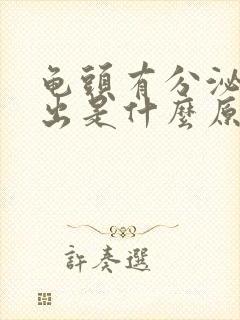 龟頭有分泌
出是什麼原
許奏選